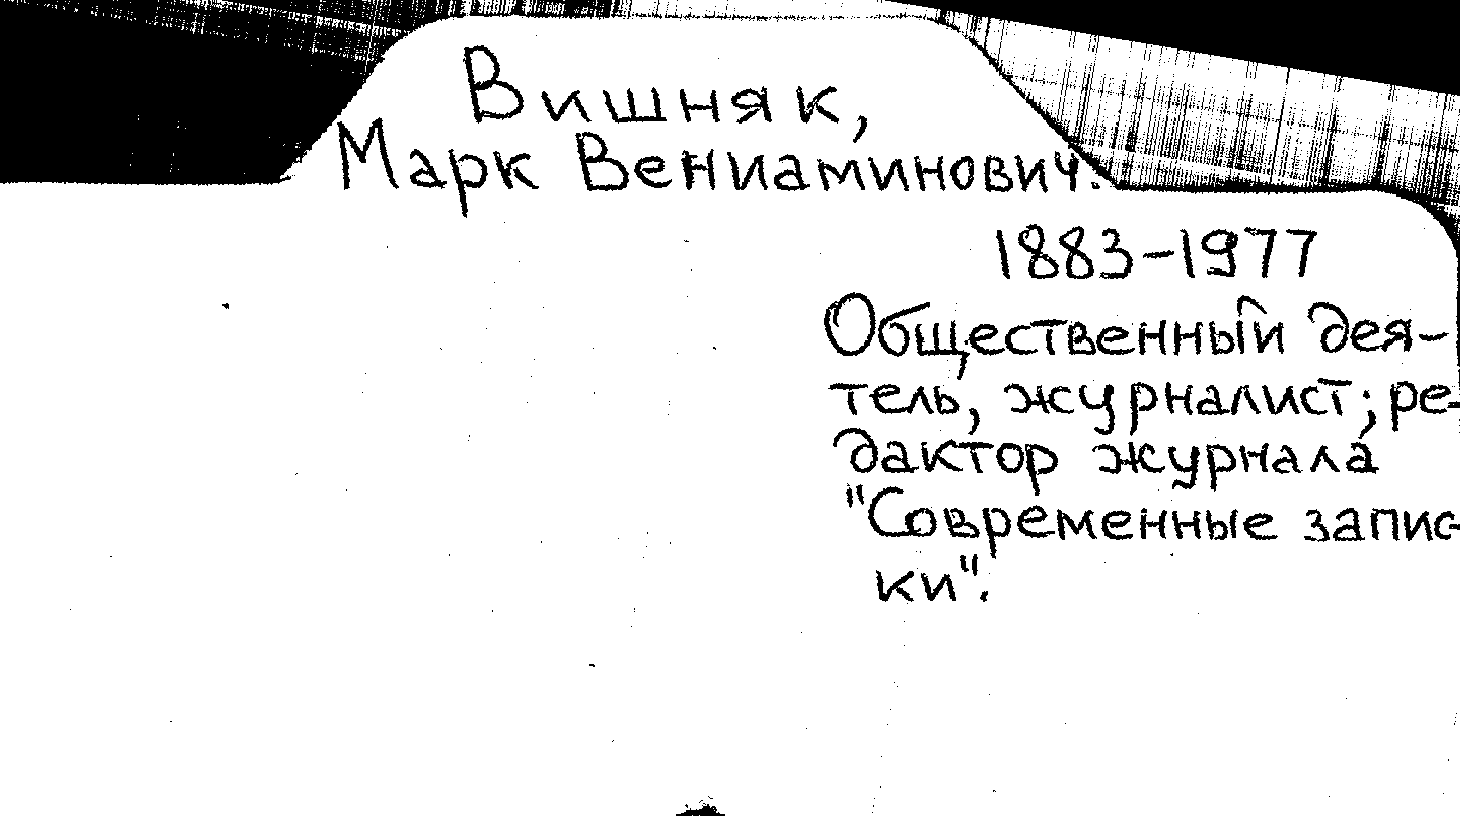 Вишняк,
Марк Вениаминович.
1883-1977
Общественный дея-
тель, журналист; ре-
дактор журнала
"Современные запис-
ки".